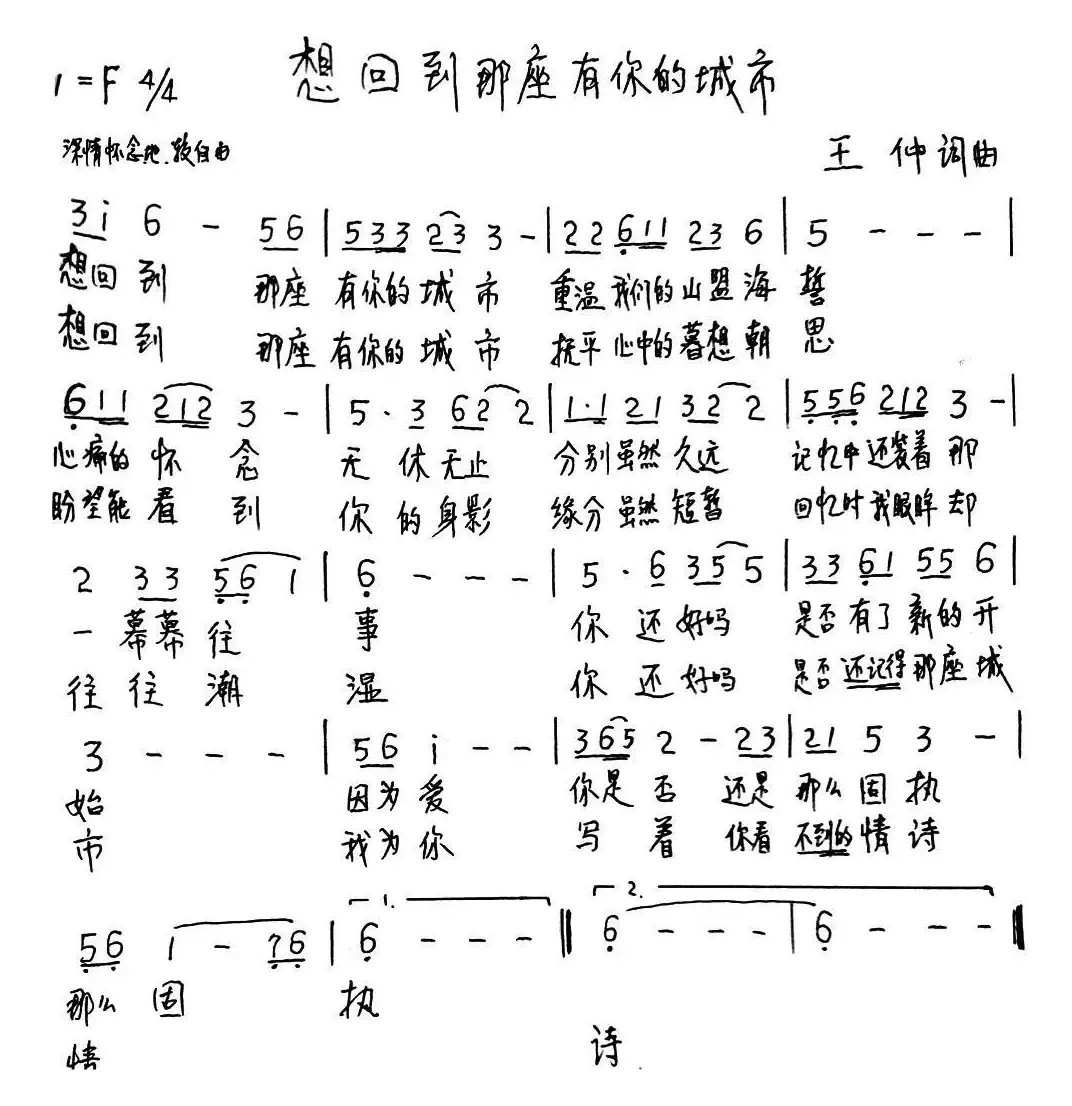 想回到那座有你的城市
1=F 4/4
深情怀念地.较自由
王 仲 词曲
3 i 6 - 5 6 | 5 3 3 2 3 3 - | 2 2 6 1 1 2 3 6 | 5 - - - |
想回到 那座 有你的 城 市 重温 我们的 山盟 海 誓
想回到 那座 有你的 城 市 抚平 心中的 暮想 朝 思
6 1 1 2 1 2 3 - | 5 · 3 6 2 2 | 1 · 1 2 1 3 2 2 | 5 5 6 2 1 2 3 - |
心痛的 怀 念 无 休 无止 分别 虽然 久远 记忆中 还装着 那
盼望能 看 到 你 的 身影 缘分 虽然 短暂 回忆时 我眼眸 却
2 3 3 5 6 1 | 6 - - - | 5 · 6 3 5 5 | 3 3 6 1 5 5 6 |
一 幕幕 往 事 你 还 好吗 是否 有了 新的 开
往 往 潮 湿 你 还 好吗 是否 还记得 那座 城
3 - - - | 5 6 i - - | 3 6 5 2 - 2 3 | 2 1 5 3 - |
始 因为 爱 你是 否 还是 那么 固 执
市 我为 你 写 着 你看 不到的 情 诗
1. 2.
5 6 1 - 7 6 | 6 - - - ‖ 6 - - - | 6 - - - ‖
那么 固 执
情 诗